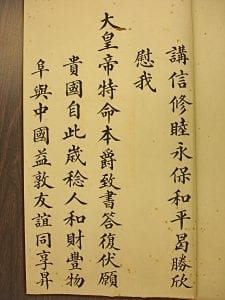 講信修睦永保和平曷勝欣
慰我
大皇帝特命本爵致書答復伏願
貴國自此歲稔人和財豐物
阜與中國益敦友誼同享昇